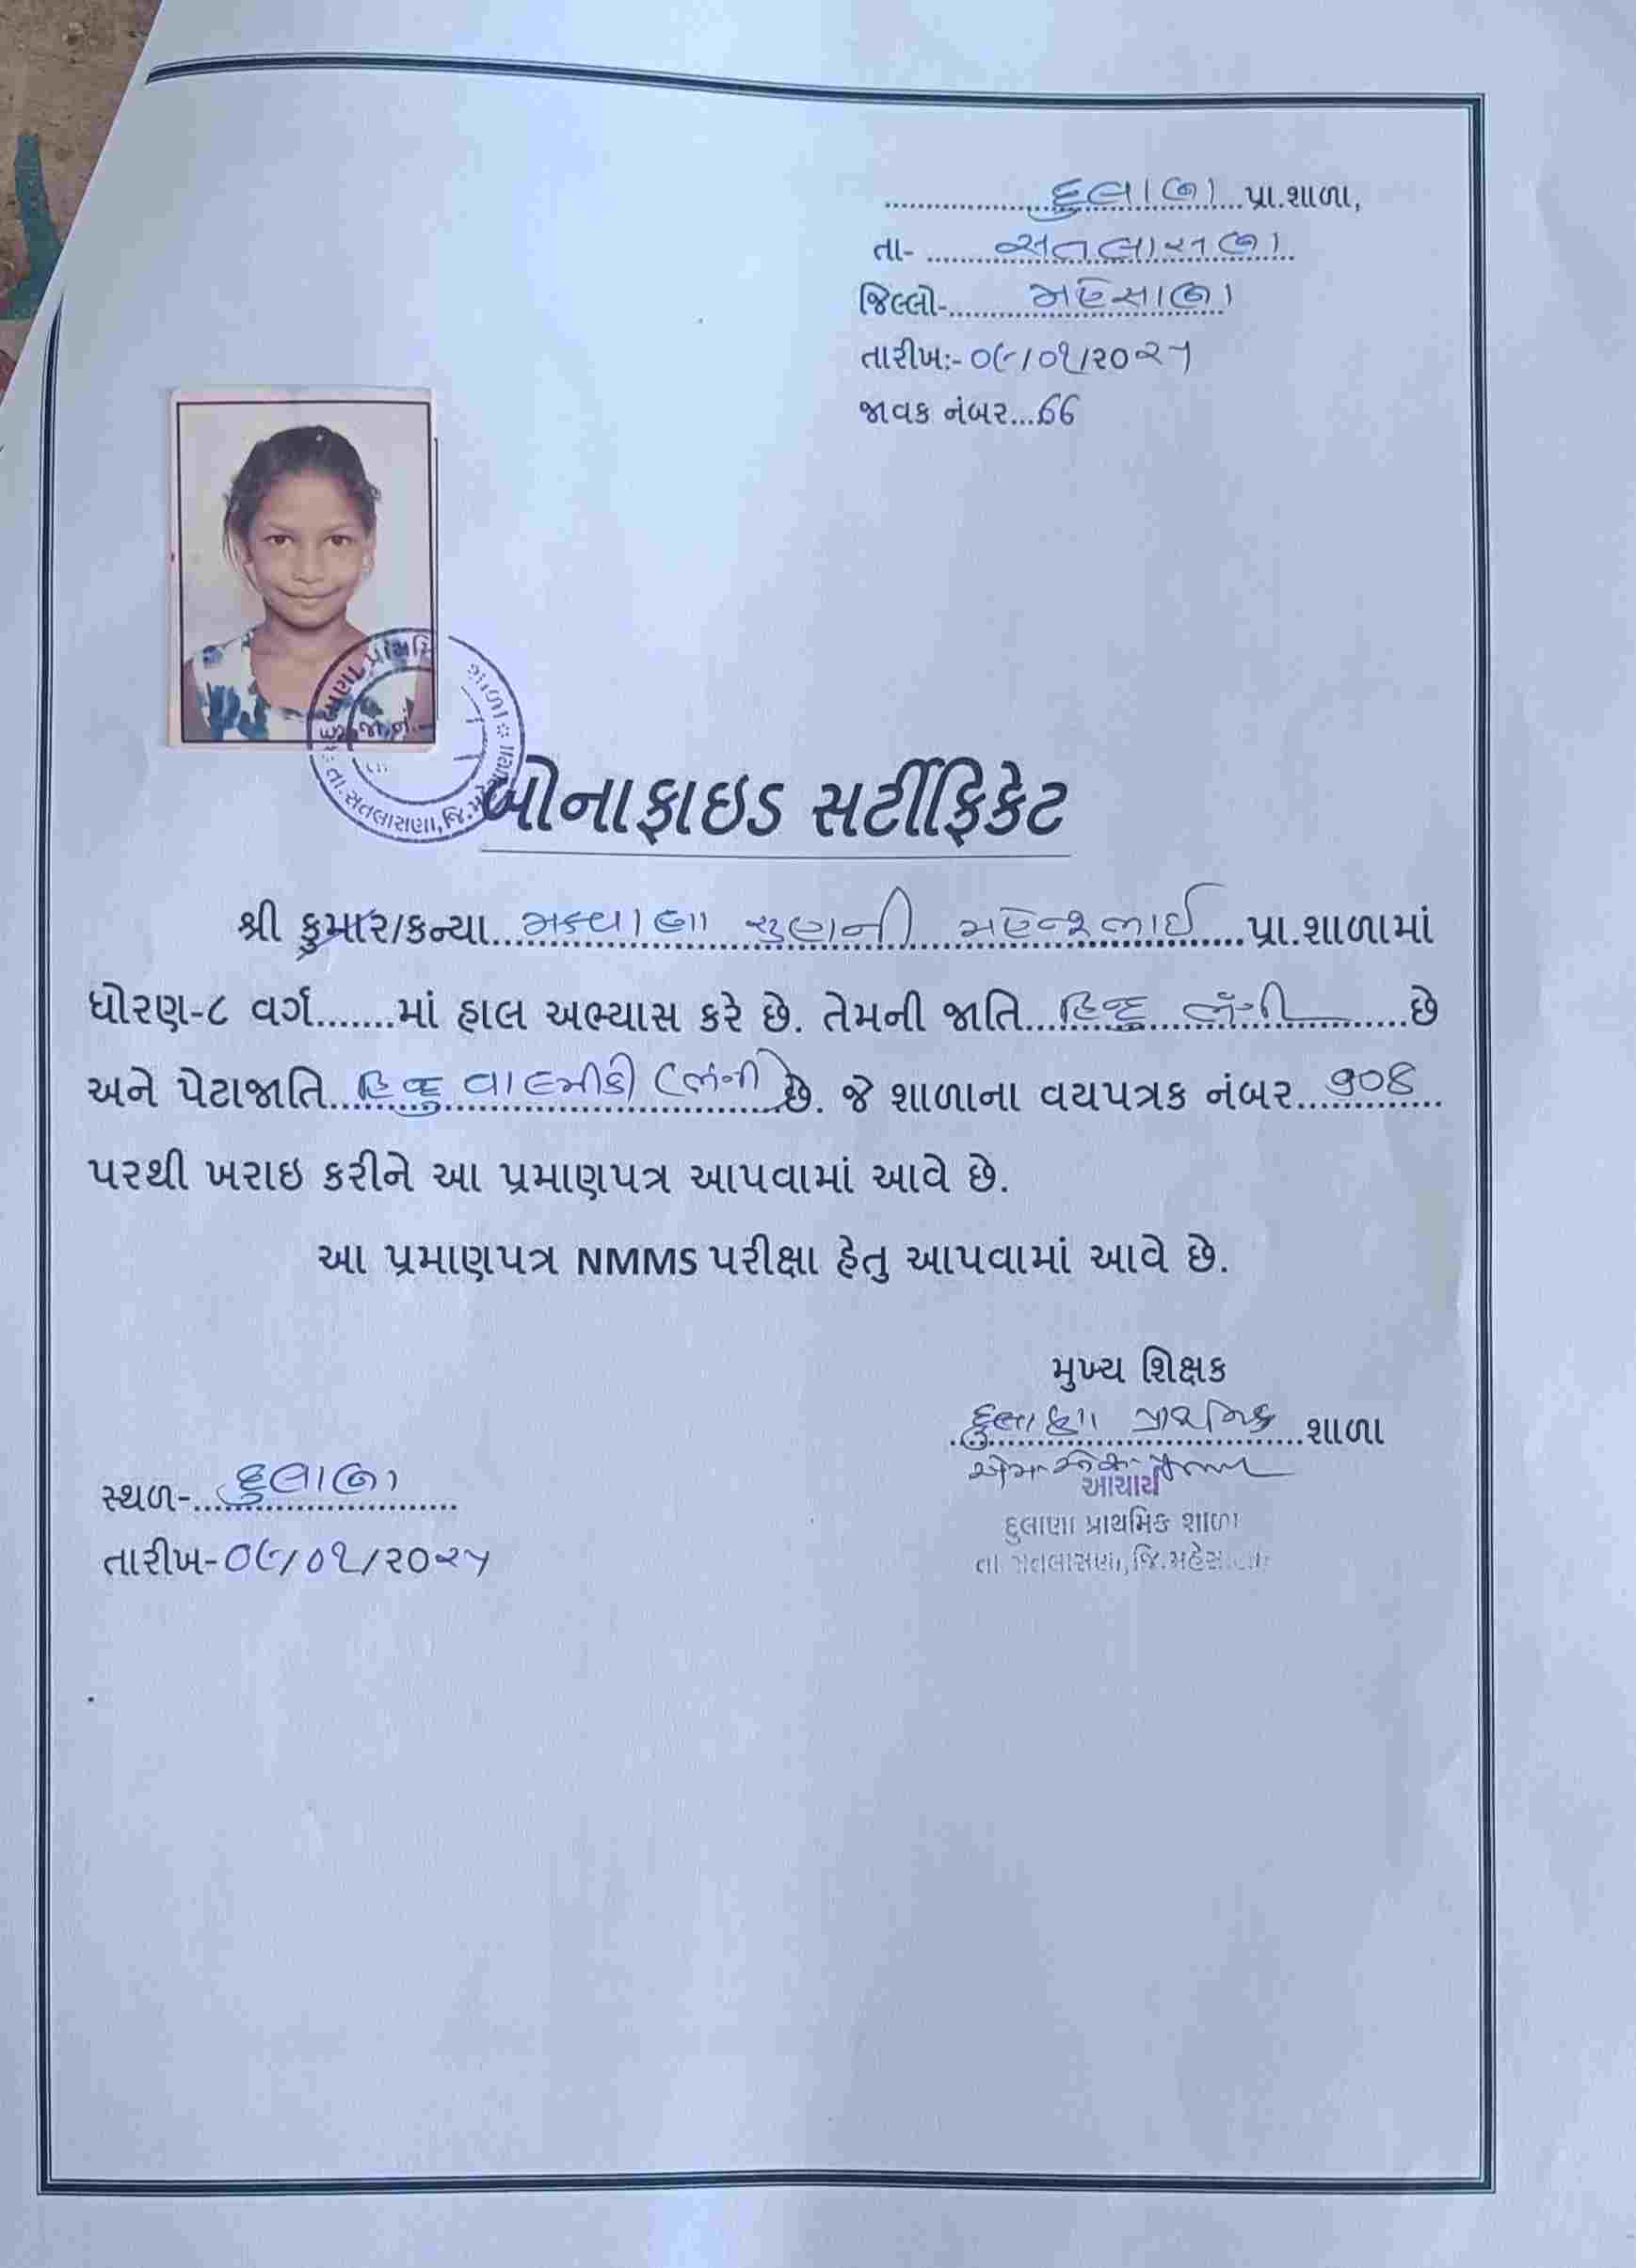 દુલાણા પ્રા.શાળા,
તા- સતલાસણા
જિલ્લો- મહેસાણા
તારીખ:- ૦૯/૦૧/૨૦૨૫
જાવક નંબર...66
બોનાફાઇડ સર્ટીફિકેટ
શ્રી કુમાર/કન્યા... મકવાણા ... પ્રા.શાળામાં
ધોરણ-૮ વર્ગ.......માં હાલ અભ્યાસ કરે છે. તેમની જાતિ... હિન્દુ ભંગી ...છે
અને પેટાજાતિ... હિન્દુ વાલ્મીકી (ભંગી) છે. જે શાળાના વયપત્રક નંબર... ૧૦૪
પરથી ખરાઇ કરીને આ પ્રમાણપત્ર આપવામાં આવે છે.
આ પ્રમાણપત્ર NMMS પરીક્ષા હેતુ આપવામાં આવે છે.
મુખ્ય શિક્ષક
દુલાણા પ્રાથમિક શાળા
આચાર્ય
દુલાણા પ્રાથમિક શાળા
તા.સતલાસણા,જિ.મહેસાણા
સ્થળ- દુલાણા
તારીખ-૦૯/૦૧/૨૦૨૫